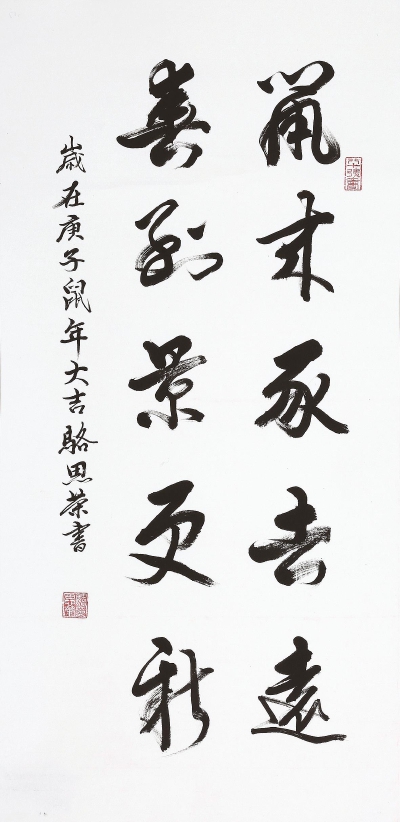 鼠来豕去遠
春到景更新
歲在庚子鼠年大吉駱思荣書